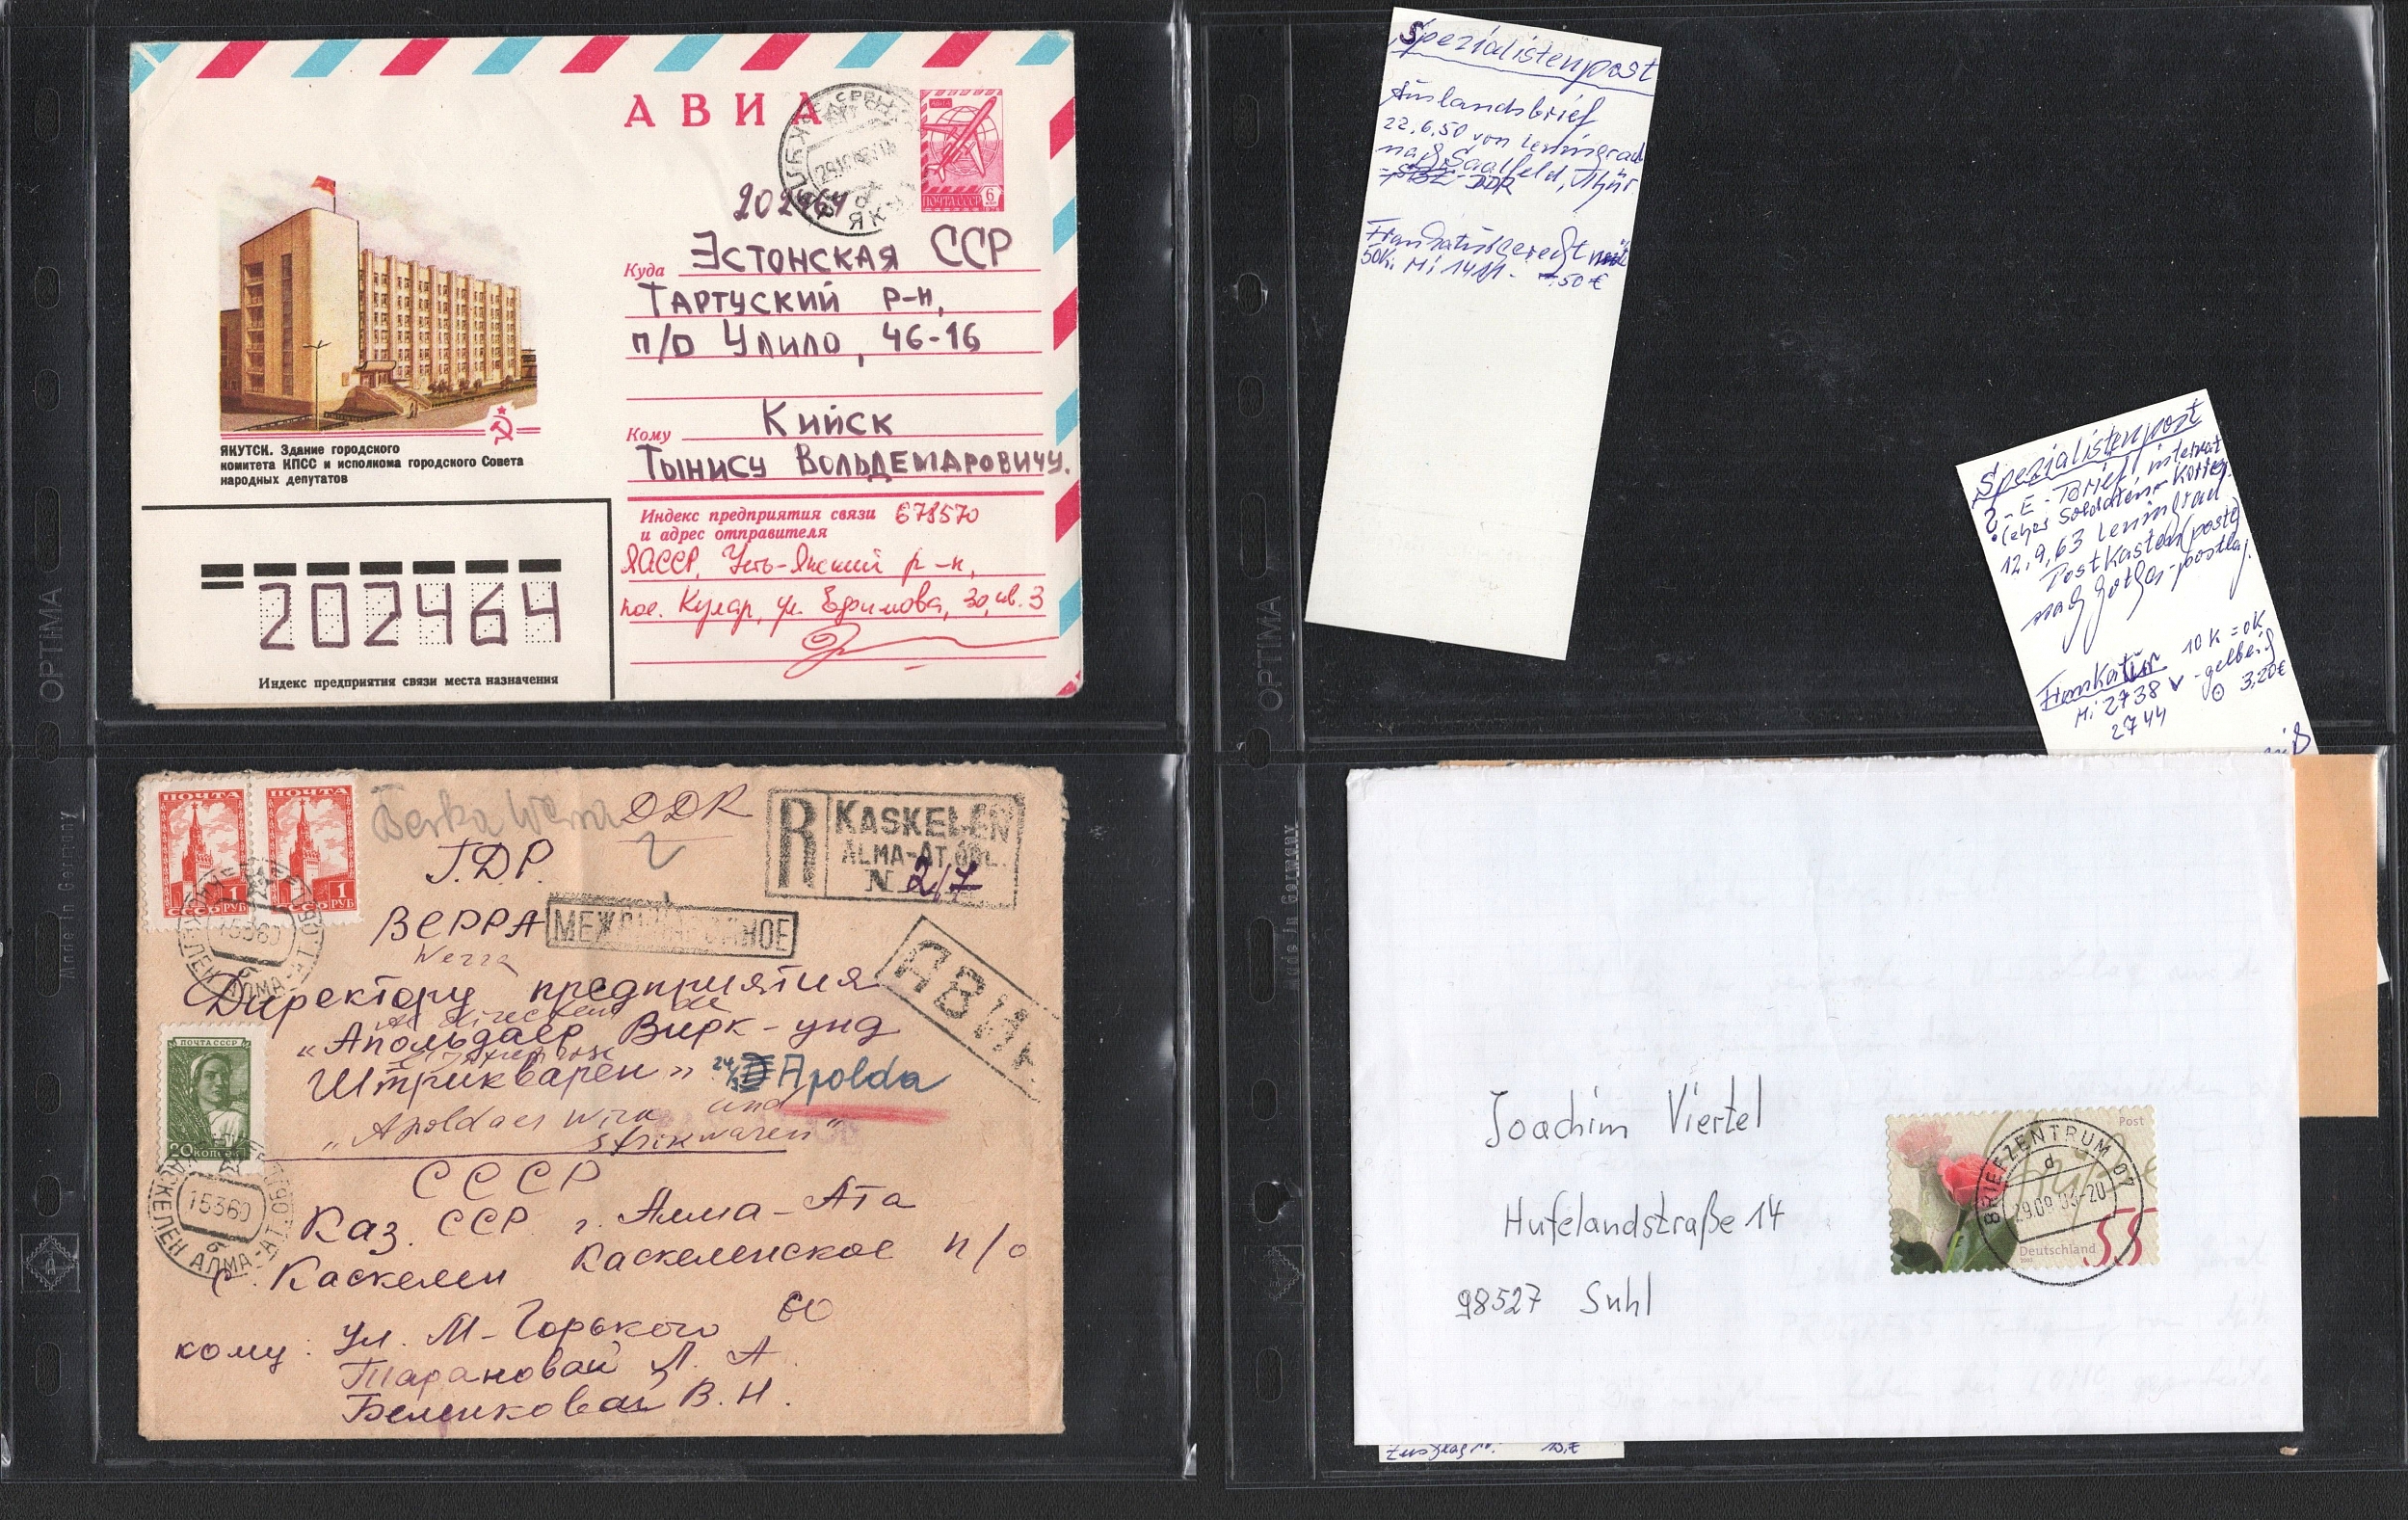 АВИА
ПОЧТА СССР
6
202464
Куда Эстонская ССР
Тартуский р-н,
п/о Улило, 46-16
Кому Кийск
Тынису Вольдемаровичу.
Индекс предприятия связи 678570
и адрес отправителя
ЯАССР, Усть-Янский р-н,
пос. Кулар, ул. Ефимова, 30, кв. 3
ЯКУТСК. Здание городского
комитета КПСС и исполкома городского Совета
народных депутатов
202464
Индекс предприятия связи места назначения
Spezialistenpost
Auslandsbrief
22.6.50 von Leningrad
nach Saalfeld, Thür
DDR
50K. Mi 1411
Spezialistenpost
12.9.63 Leningrad
Postkasten
nach Gotha
Frankatur 10 K = OK
Mi 2738
2744
3,20€
OPTIMA
OPTIMA
Made in Germany
Made in Germany
ПОЧТА
1 РУБ
СССР
ПОЧТА
1 РУБ
СССР
DDR
R
KASKELEN
ALMA-AT. OBL.
N 217
Г.Д.Р.
МЕЖДУНАРОДНОЕ
ВЕРРА
Werra
АВИА
15360
КАСКЕЛЕН АЛМА-АТ. ОБЛ.
Директору предприятия
"Апольдаер Вирк-унд
Штрикварен" Apolda
"Apoldaer Wirk und
Strikwaren"
ПОЧТА СССР
20 КОПЕЕК
15360
КАСКЕЛЕН АЛМА-АТ. ОБЛ.
СССР
Каз. ССР г. Алма-Ата
с. Каскелен Каскеленское п/о
ул. М-Горького 60
кому: Тарановай Л. А.
Беленковай В. Н.
Joachim Viertel
Hufelandstraße 14
98527 Suhl
Post
Deutschland
55
BRIEFZENTRUM 07
d
29.09.03-20